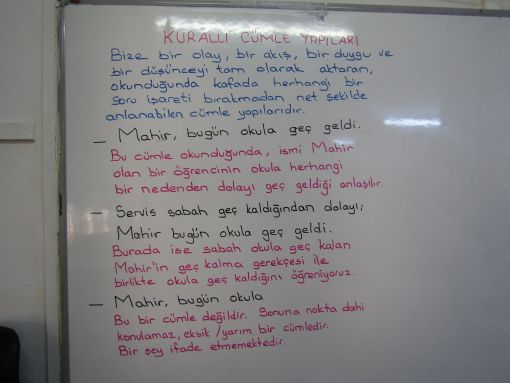 KURALLI CÜMLE YAPILARI
Bize bir olay, bir akış, bir duygu ve
bir düşünceyi tam olarak aktaran,
okunduğunda kafada herhangi bir
soru işareti bırakmadan net şekilde
anlanabilen cümle yapılarıdır.
— Mahir, bugün okula geç geldi.
Bu cümle okunduğunda, ismi Mahir
olan bir öğrencinin okula herhangi
bir nedenden dolayı geç geldiği anlaşılır.
— Servis sabah geç kaldığından dolayı;
Mahir bugün okula geç geldi.
Burada ise sabah okula geç kalan
Mahir'in geç kalma gerekçesi ile
birlikte okula geç kaldığını öğreniyoruz.
— Mahir, bugün okula
Bu bir cümle değildir. Sonuna nokta dahi
konulamaz, eksik/yarım bir cümledir.
Bir şey ifade etmemektedir.